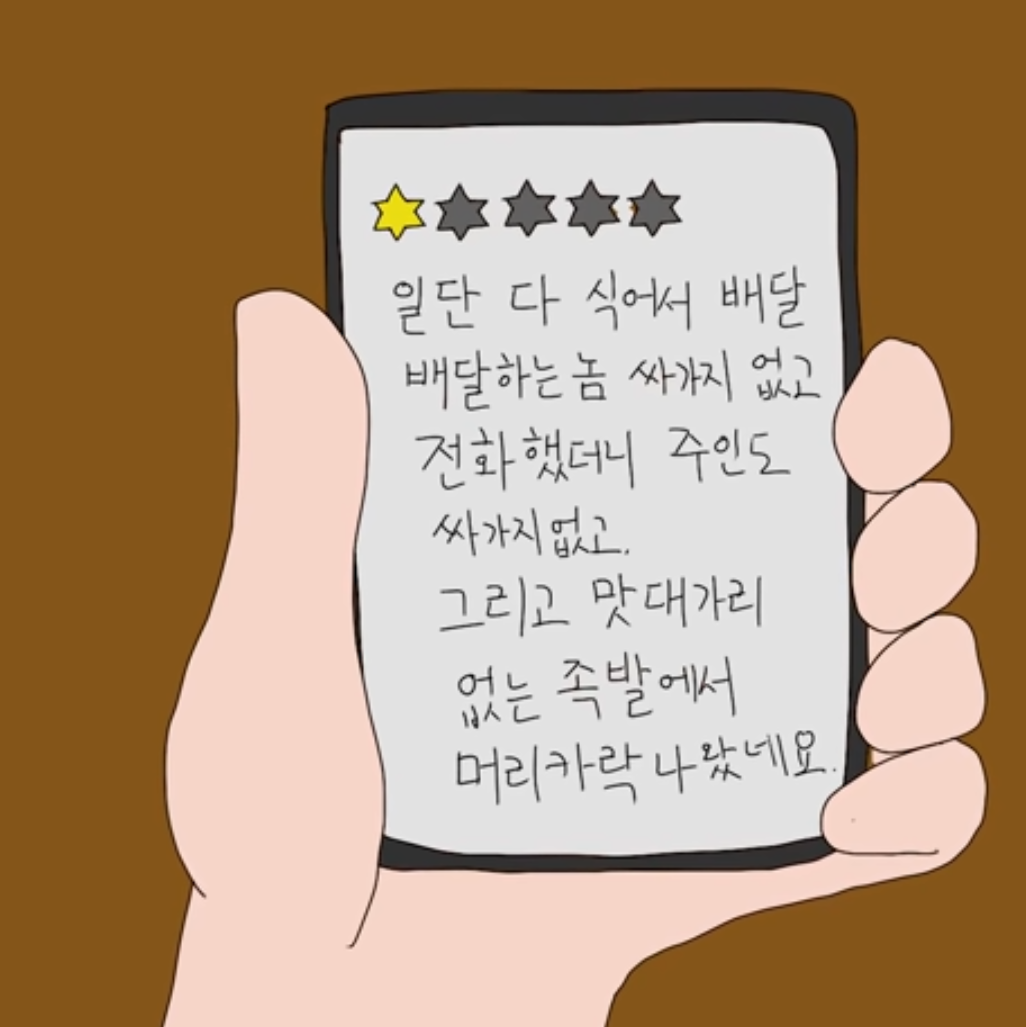 일단 다 식어서 배달
배달하는놈 싸가지 없고
전화했더니 주인도
싸가지없고.
그리고 맛대가리
없는 족발에서
머리카락 나왔네요.